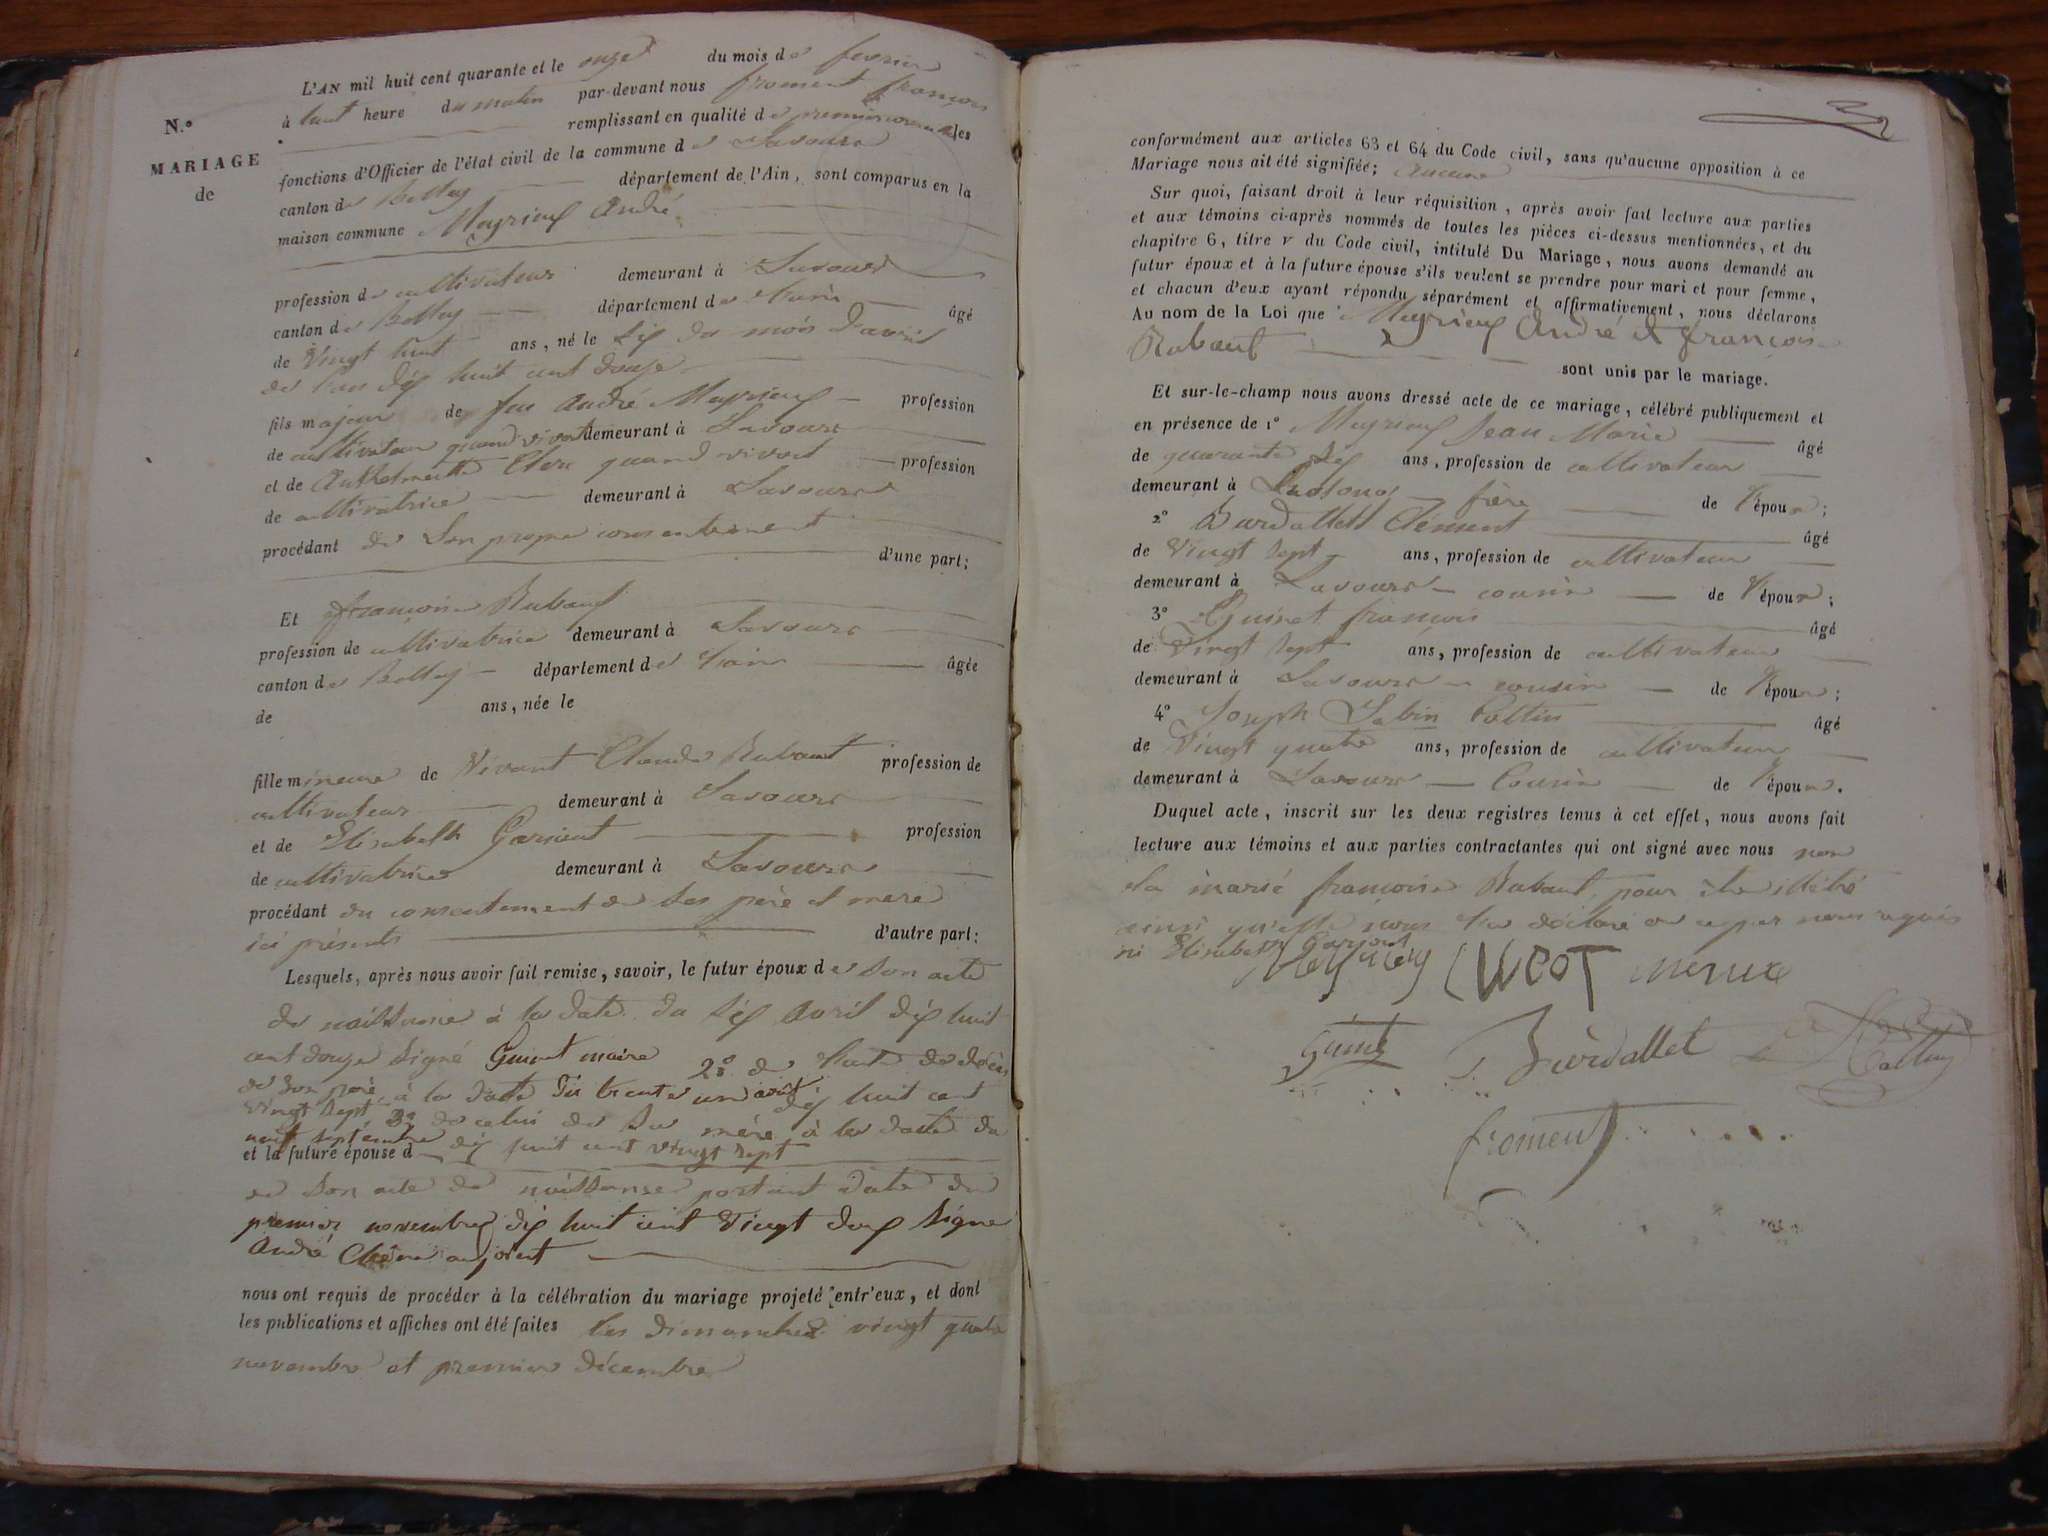 L'AN mil huit cent quarante et le onze du mois de fevrier
à huit heure du matin par-devant nous froment françois
N.º
remplissant en qualité de premier les
MARIAGE
de
fonctions d'Officier de l'état civil de la commune de Lavours
canton de Belley département de l'Ain, sont comparus en la
maison commune Meyrieux André
profession de cultivateur demeurant à Lavours
canton de Belley département de l'ain âgé
de Vingt huit ans, né le six du mois d'avril
de l'an dix huit cent douze
fils majeur de feu André Meyrieux profession
de cultivateur quand vivait demeurant à Lavours
et de Anthelmette Clerc quand vivait profession
de cultivatrice demeurant à Lavours
procédant de son propre consentement
d'une part;
Et françoise Rubaud
profession de cultivatrice demeurant à Lavours
canton de Belley département de l'ain âgée
de ans, née le
fille mineure de Vivant Claude Rubaut profession de
cultivateur demeurant à Lavours
et de Elisabeth Garient profession
de cultivatrice demeurant à Lavours
procédant du consentement de ses père et mere
ici présents d'autre part:
Lesquels, après nous avoir fait remise, savoir, le futur époux de son acte
de naissance à la date du six avril dix huit
cent douze signé Guinet maire 2º de l'acte de décès
de son père à la date du trente un août dix huit cent
vingt sept, 3º de celui de sa mère à la date du
neuf septembre dix huit cent vingt sept
et la future épouse d
de son acte de naissance portant date du
premier novembre dix huit cent vingt deux signé
André adjoint
nous ont requis de procéder à la célébration du mariage projeté entr'eux, et dont
les publications et affiches ont été faites les dimanches vingt quatre
novembre et premier décembre
conformément aux articles 63 et 64 du Code civil, sans qu'aucune opposition à ce
Mariage nous ait été signifiée; aucune
Sur quoi, faisant droit à leur réquisition, après avoir fait lecture aux parties
et aux témoins ci-après nommés de toutes les pièces ci-dessus mentionnées, et du
chapitre 6, titre v du Code civil, intitulé Du Mariage, nous avons demandé au
futur époux et à la future épouse s'ils veulent se prendre pour mari et pour femme,
et chacun d'eux ayant répondu séparément et affirmativement, nous déclarons
Au nom de la Loi que Meyrieux André et françoise
Rubaut
sont unis par le mariage.
Et sur-le-champ nous avons dressé acte de ce mariage, célébré publiquement et
en présence de 1º Meyrieux Jean Marie âgé
de quarante six ans, profession de cultivateur
demeurant à frère de l'époux;
2º Burdallet Clément âgé
de Vingt sept ans, profession de cultivateur
demeurant à Lavours cousin de l'époux;
3º Guinet françois âgé
de Vingt sept ans, profession de cultivateur
demeurant à Lavours cousin de l'époux;
4º Joseph Sabin Pollin âgé
de Vingt quatre ans, profession de cultivateur
demeurant à Lavours Cousin de l'époux.
Duquel acte, inscrit sur les deux registres tenus à cet effet, nous avons fait
lecture aux témoins et aux parties contractantes qui ont signé avec nous non
la marié françoise Rubaut pour être illétré
ainsi qu'elle nous l'a déclaré de ce par nous requis
ni Elisabeth Garient
Guinet Burdallet
froment